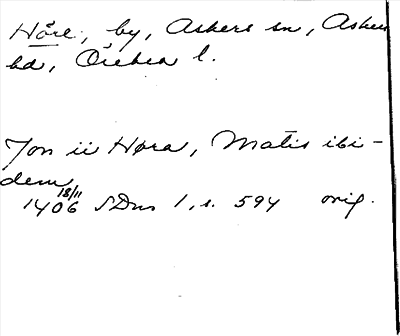 Håre, by, Askers sn, Askers
hd, Örebro l.
Jon ii Høra, Matis ibi-
dem
1406 18/11 SDns 1, s. 594 orig.